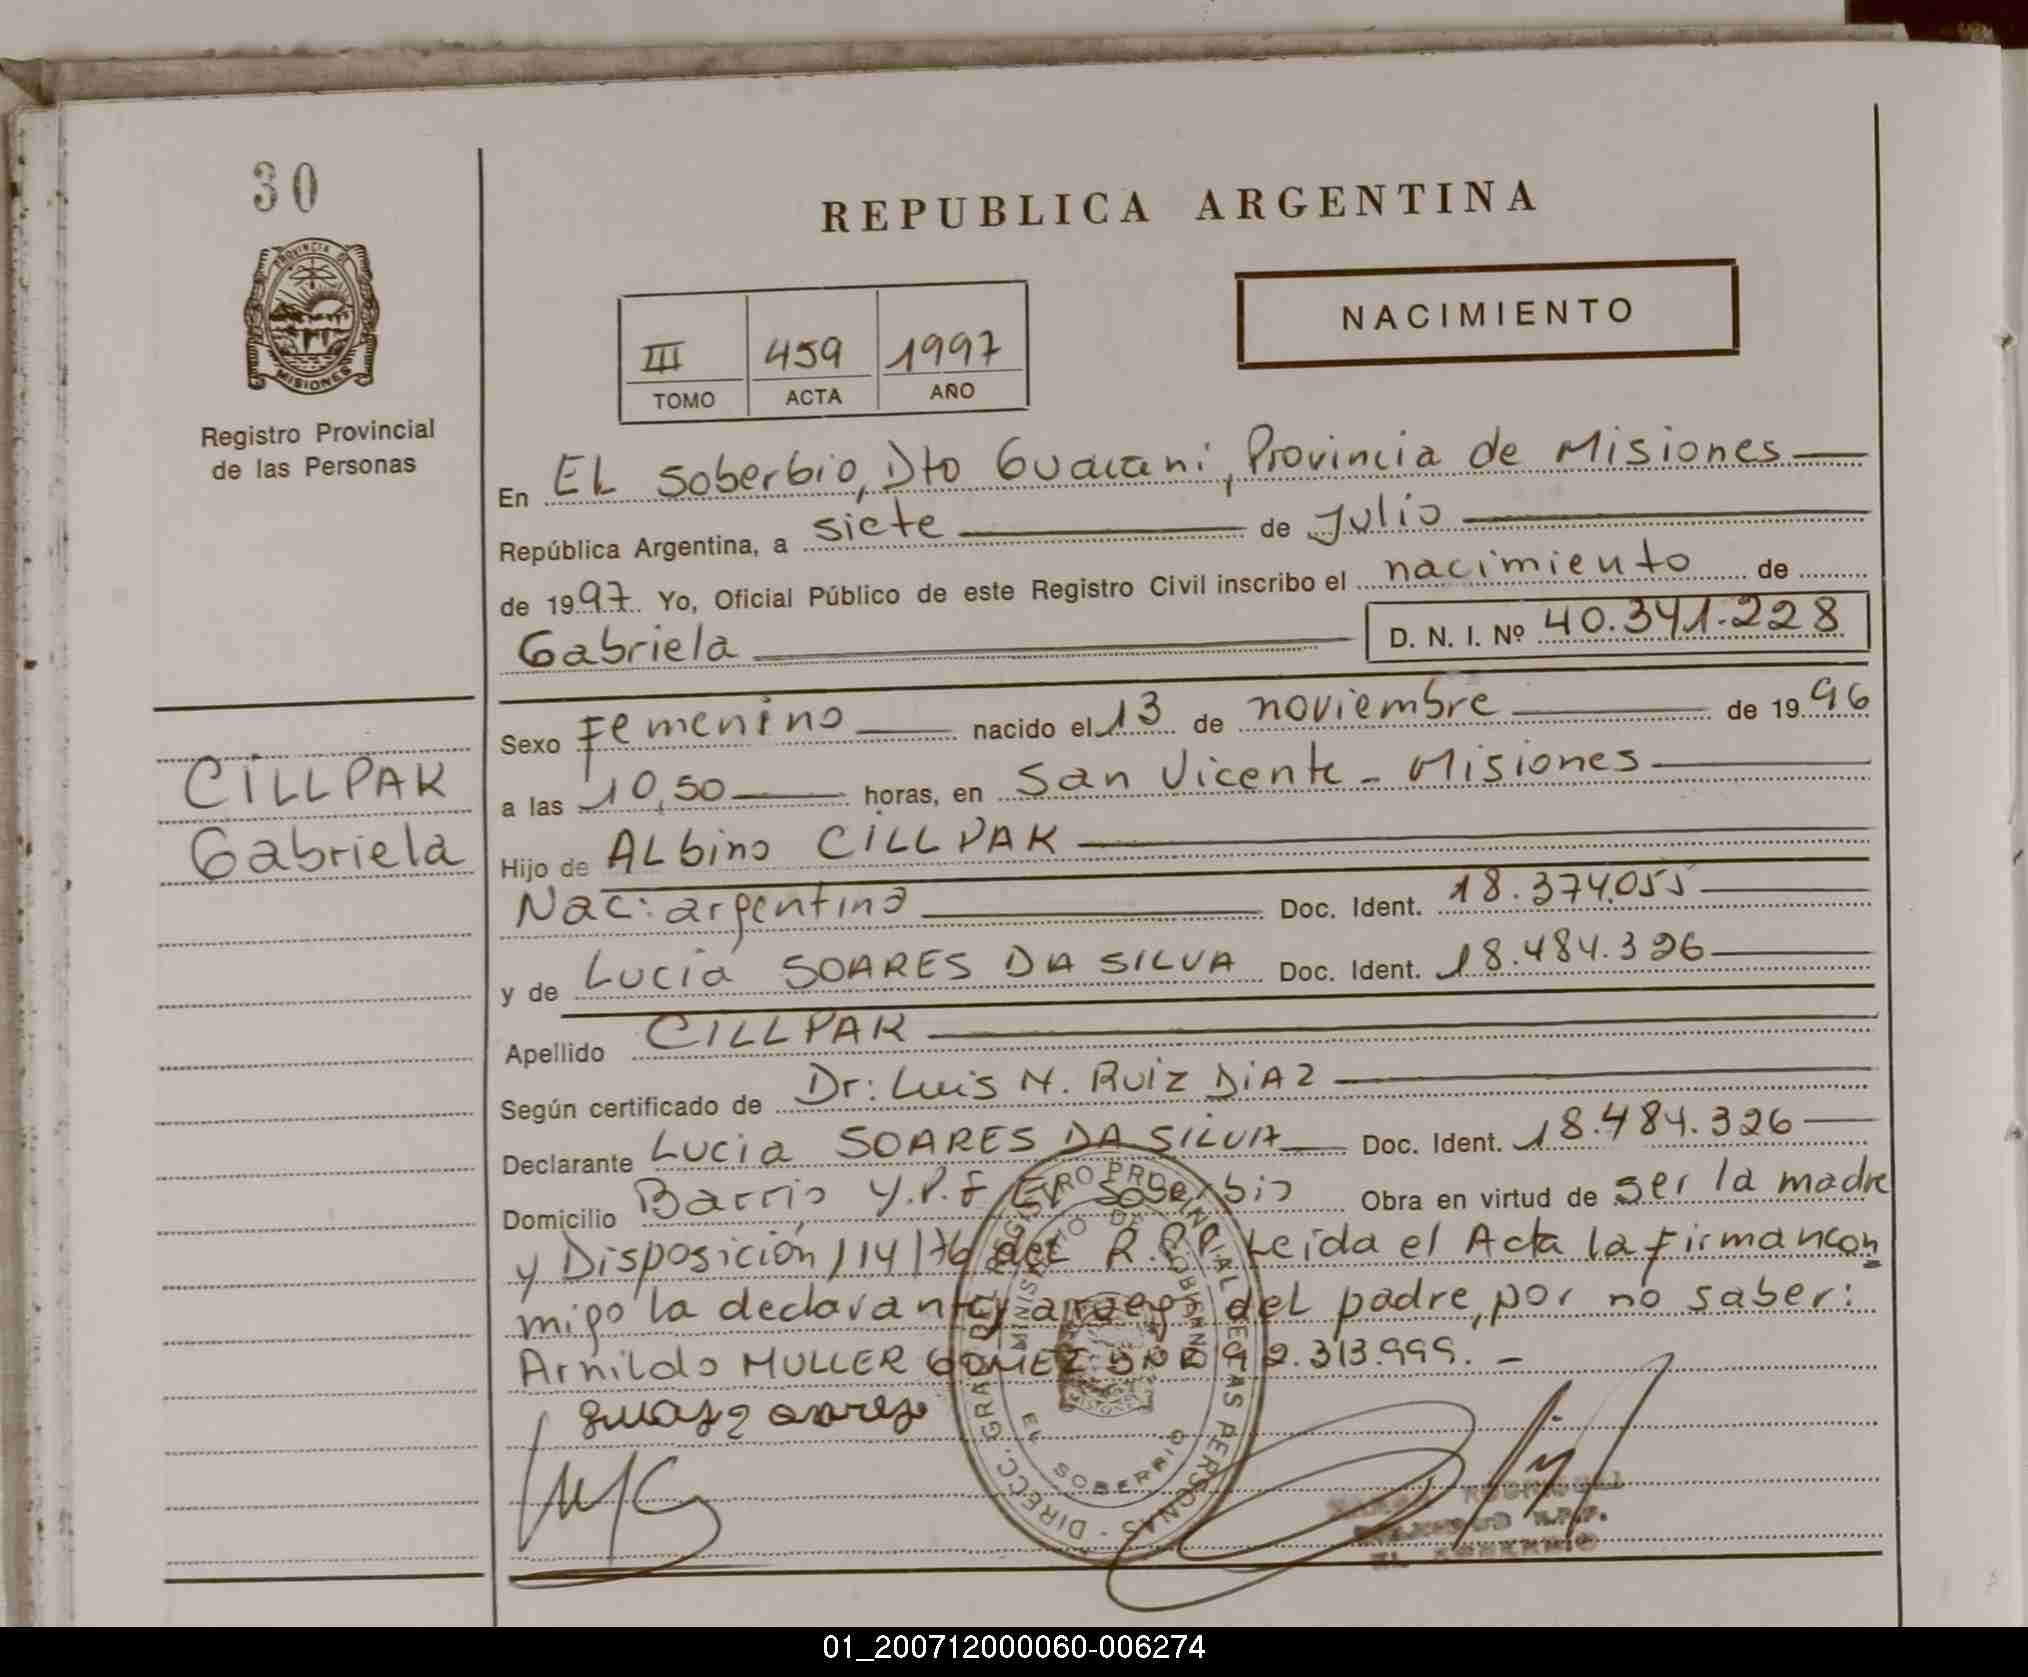 30
REPUBLICA ARGENTINA
PROVINCIA DE
MISIONES
Registro Provincial
de las Personas
III 459 1997
TOMO ACTA AÑO
NACIMIENTO
En EL Soberbio, Dto Guarani, Provincia de Misiones
República Argentina, a siete de Julio
de 1997. Yo, Oficial Público de este Registro Civil inscribo el nacimiento de
Gabriela D. N. I. Nº 40.341.228
Sexo Femenino nacido el 13 de noviembre de 1996
a las 10,50 horas, en San Vicente - Misiones
CILLPAK
Gabriela
Hijo de ALbino CILLPAK
Nac: argentino Doc. Ident. 18.374.055
y de Lucia SOARES DA SILVA Doc. Ident. 18.484.326
Apellido CILLPAK
Según certificado de Dr: Luis M. Ruiz DiAz
Declarante Lucia SOARES DA SILVA Doc. Ident. 18.484.326
Domicilio Barrio Y.P.F EL Soberbio Obra en virtud de ser la madre
y Disposición 114/76 del R.P.P. Leida el Acta la firman con
migo la declarante y a ruego del padre, por no saber:
Arnildo MULLER GOMEZ DNI 92.313.999. -
DIRECC. GRAL. DEL REGISTRO PROVINCIAL DE LAS PERSONAS
MINISTERIO DE GOBIERNO
MISIONES
EL SOBERBIO
RODRIGUEZ
R.P.P.
EL SOBERBIO
01_200712000060-006274